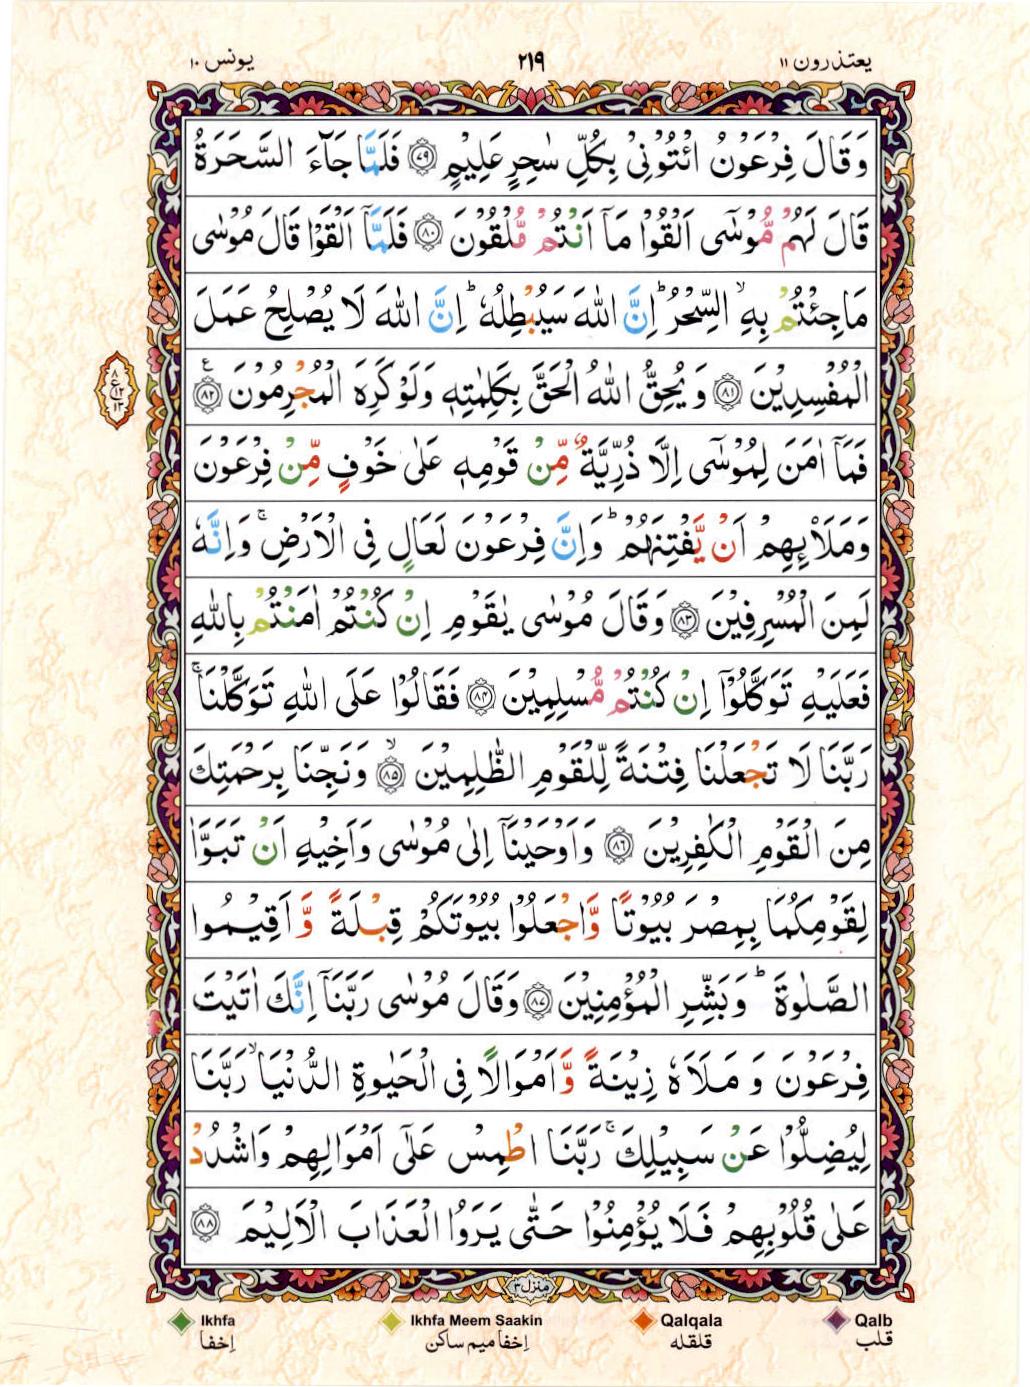 يعتذرون ١١
٢١٩
يونس ١٠
وَقَالَ فِرْعَوْنُ ائْتُوْنِيْ بِكُلِّ سٰحِرٍ عَلِيْمٍ ﴿٧٩﴾ فَلَمَّا جَآءَ السَّحَرَةُ
قَالَ لَهُمْ مُّوْسٰٓى اَلْقُوْا مَآ اَنْتُمْ مُّلْقُوْنَ ﴿٨٠﴾ فَلَمَّآ اَلْقَوْا قَالَ مُوْسٰى
مَا جِئْتُمْ بِهِ ۙ السِّحْرُ ؕ اِنَّ اللّٰهَ سَيُبْطِلُهٗ ؕ اِنَّ اللّٰهَ لَا يُصْلِحُ عَمَلَ
الْمُفْسِدِيْنَ ﴿٨١﴾ وَيُحِقُّ اللّٰهُ الْحَقَّ بِكَلِمٰتِهٖ وَلَوْ كَرِهَ الْمُجْرِمُوْنَ ﴿٨٢﴾ ع
٨
ع
١٢
١٣
فَمَآ اٰمَنَ لِمُوْسٰٓى اِلَّا ذُرِّيَّةٌ مِّنْ قَوْمِهٖ عَلٰى خَوْفٍ مِّنْ فِرْعَوْنَ
وَمَلَا۟ئِهِمْ اَنْ يَّفْتِنَهُمْ ؕ وَاِنَّ فِرْعَوْنَ لَعَالٍ فِى الْاَرْضِ ۚ وَاِنَّهٗ
لَمِنَ الْمُسْرِفِيْنَ ﴿٨٣﴾ وَقَالَ مُوْسٰى يٰقَوْمِ اِنْ كُنْتُمْ اٰمَنْتُمْ بِاللّٰهِ
فَعَلَيْهِ تَوَكَّلُوْٓا اِنْ كُنْتُمْ مُّسْلِمِيْنَ ﴿٨٤﴾ فَقَالُوْا عَلَى اللّٰهِ تَوَكَّلْنَا ۚ
رَبَّنَا لَا تَجْعَلْنَا فِتْنَةً لِّلْقَوْمِ الظّٰلِمِيْنَ ۙ ﴿٨٥﴾ وَنَجِّنَا بِرَحْمَتِكَ
مِنَ الْقَوْمِ الْكٰفِرِيْنَ ﴿٨٦﴾ وَاَوْحَيْنَآ اِلٰى مُوْسٰى وَاَخِيْهِ اَنْ تَبَوَّاٰ
لِقَوْمِكُمَا بِمِصْرَ بُيُوْتًا وَّاجْعَلُوْا بُيُوْتَكُمْ قِبْلَةً وَّاَقِيْمُوا
الصَّلٰوةَ ؕ وَبَشِّرِ الْمُؤْمِنِيْنَ ﴿٨٧﴾ وَقَالَ مُوْسٰى رَبَّنَآ اِنَّكَ اٰتَيْتَ
فِرْعَوْنَ وَمَلَاَهٗ زِيْنَةً وَّاَمْوَالًا فِى الْحَيٰوةِ الدُّنْيَا ۙ رَبَّنَا
لِيُضِلُّوْا عَنْ سَبِيْلِكَ ۚ رَبَّنَا اطْمِسْ عَلٰٓى اَمْوَالِهِمْ وَاشْدُدْ
عَلٰى قُلُوْبِهِمْ فَلَا يُؤْمِنُوْا حَتّٰى يَرَوُا الْعَذَابَ الْاَلِيْمَ ﴿٨٨﴾
منزل ٣
Ikhfa
Ikhfa Meem Saakin
Qalqala
Qalb
إخفا
إخفا ميم ساكن
قلقله
قلب